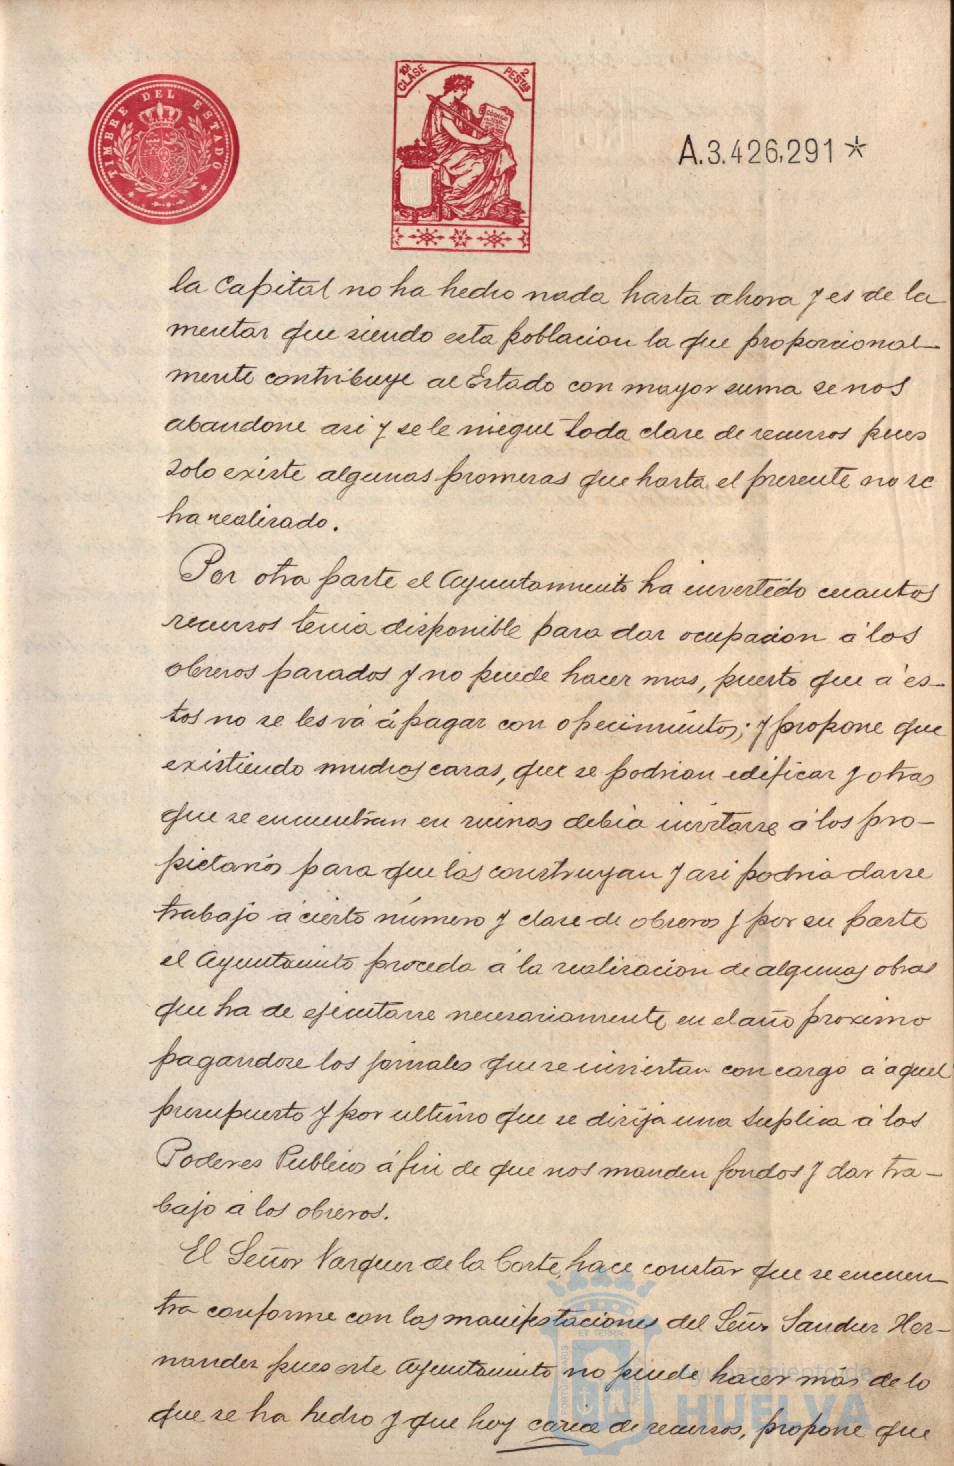 TIMBRE DEL ESTADO
10ª CLASE 2 PESTAS
A.3.426,291*
la Capital no ha hecho nada hasta ahora y es de la
mentar que siendo esta poblacion la que proporcional-
mente contribuye al Estado con mayor suma se nos
abandone asi y se le niegue toda clase de recursos pues
solo existe algunas promesas que hasta el presente no se
ha realizado.
Por otra parte el Ayuntamiento ha invertido cuantos
recursos tenia disponible para dar ocupacion á los
obreros parados y no puede hacer mas, puesto que á es-
tos no se les vá á pagar con ofrecimientos; y propone que
existiendo muchas casas, que se podrian edificar y otras
que se encuentran en ruinas debia invitarse á los pro-
pietarios para que las construyan y asi podria darse
trabajo á cierto número y clase de obreros y por su parte
el Ayuntamito proceda á la realizacion de algunas obras
que ha de ejecutarse necesariamente en el año proximo
pagandose los jornales que se inviertan con cargo á aquel
presupuesto y por ultimo que se dirija una suplica á los
Poderes Publicos á fin de que nos manden fondos y dar tra-
bajo á los obreros.
El Señor Vazquez de la Corte, hace constar que se encuen
tra conforme con las manifestaciones del Señor Sanchez Her-
nandez pues este Ayuntamiento no puede hacer más de lo
que se ha hecho y que hoy carece de recursos, propone que
Ayuntamiento de
HUELVA